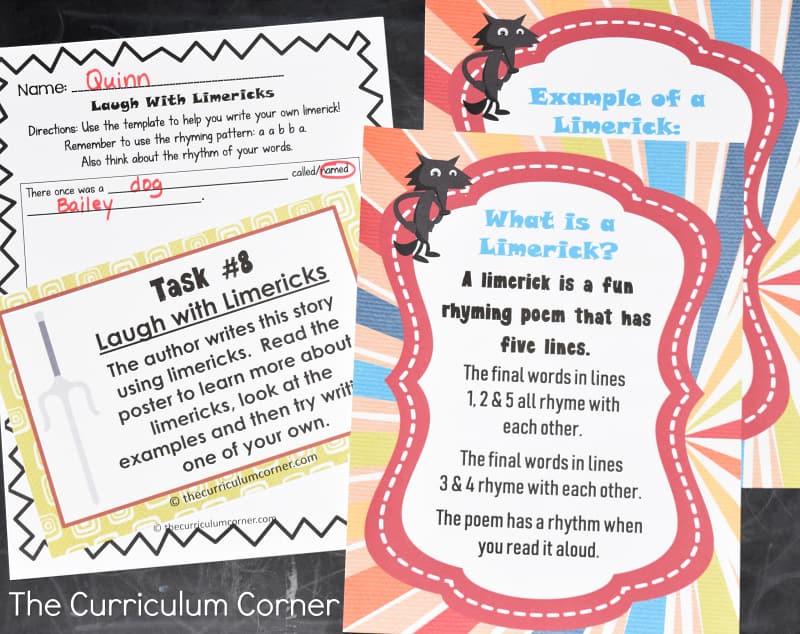 Name: Quinn
Laugh With Limericks
Directions: Use the template to help you write your own limerick!
Remember to use the rhyming pattern: a a b b a.
Also think about the rhythm of your words.
There once was a dog called/named
Bailey.
Task #8
Laugh with Limericks
The author writes this story
using limericks. Read the
poster to learn more about
limericks, look at the
examples and then try
one of your own.
© thecurriculumcorner.com
© thecurriculumcorner.com
Example of a
Limerick:
What is a
Limerick?
A limerick is a fun
rhyming poem that has
five lines.
The final words in lines
1, 2 & 5 all rhyme with
each other.
The final words in lines
3 & 4 rhyme with each other.
The poem has a rhythm when
you read it aloud.
The Curriculum Corner